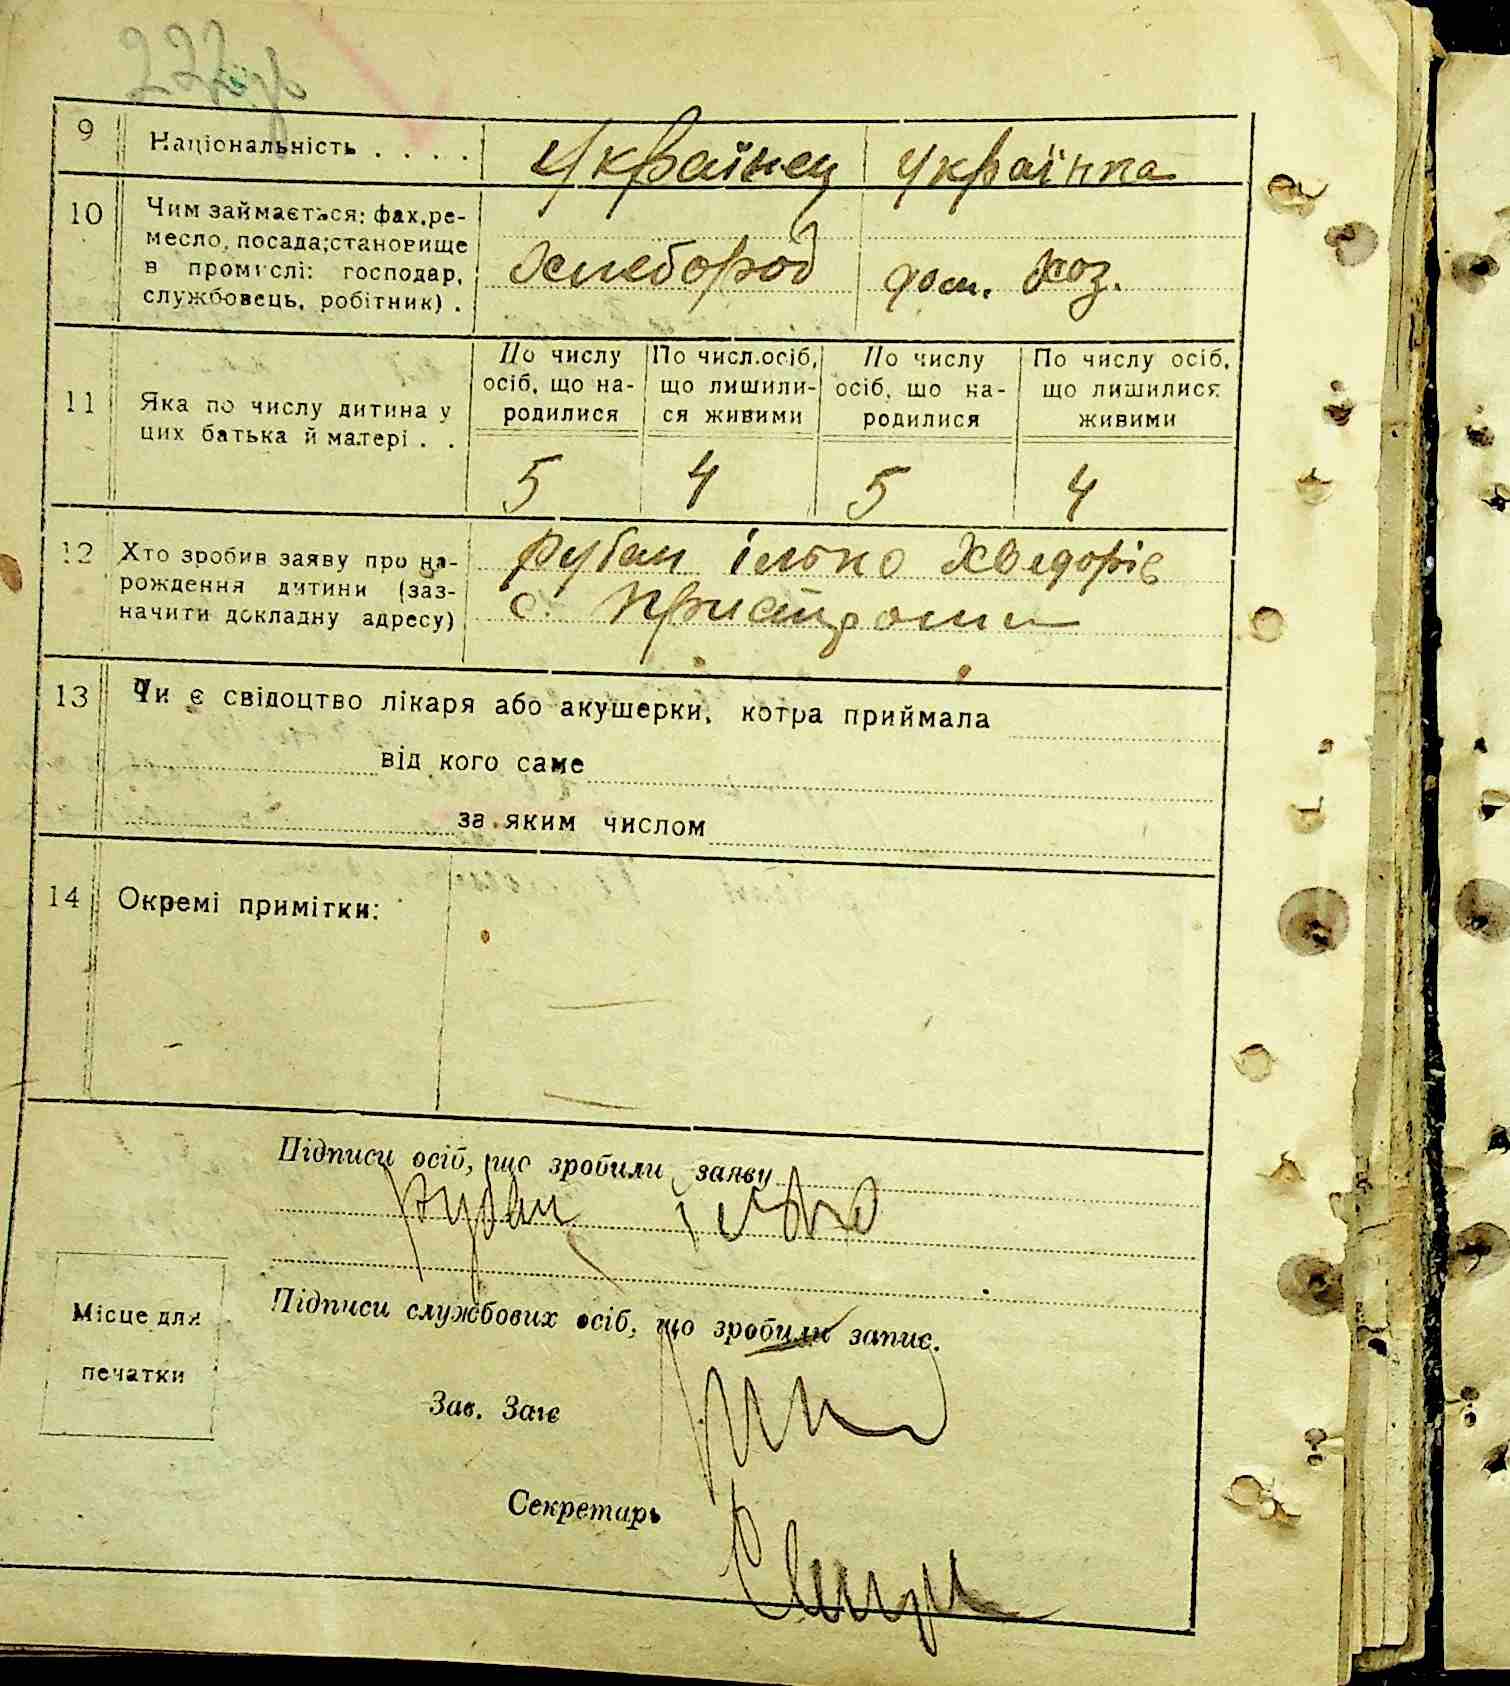 9 Національність . . . . Українец Українка
10 Чим займається: фах, ре-
месло, посада; становище
в промислі: господар,
службовець, робітник) .
Хлебород дом. хоз.
11 Яка по числу дитина у
цих батька й матері . .
По числу
осіб, що на-
родилися
По числ. осіб,
що лишили-
ся живими
По числу
осіб, що на-
родилися
По числу осіб,
що лишилися
живими
5 4 5 4
12 Хто зробив заяву про на-
рождення дитини (заз-
начити докладну адресу)
Рубан Ілько Хведорів
с. Пристроми
13 Чи є свідоцтво лікаря або акушерки, котра приймала
від кого саме
за яким числом
14 Окремі примітки:
Підписи осіб, що зробили заяву
Рубан Ілько
Підписи службових осіб, що зробили запис.
Місце для
печатки
Зав. Загс
Секретарь